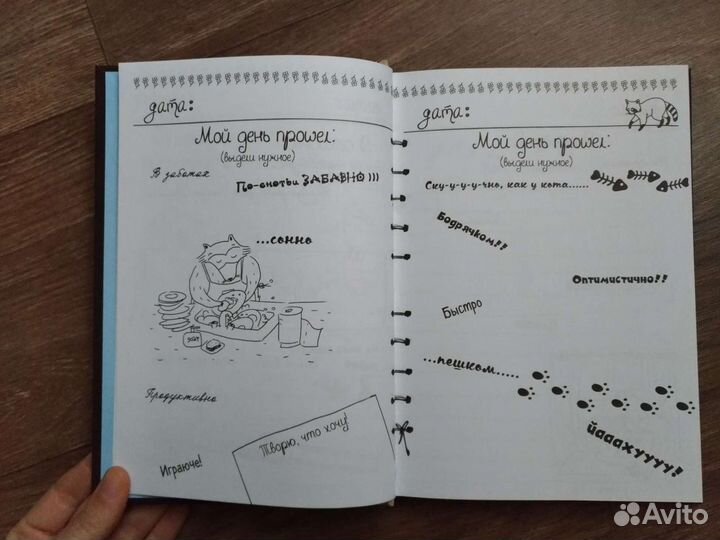 дата:
Мой день прошел:
(выдели нужное)
В заботах
По-енотьи ЗАБАВНО)))
...сонно
Продуктивно
Играюче!
Творю, что хочу!
дата:
Мой день прошел:
(выдели нужное)
Ску-у-у-у-учно, как у кота......
Бодрячком!!
Оптимистично!!
Быстро
...пешком.....
йааахуууу!
Avito